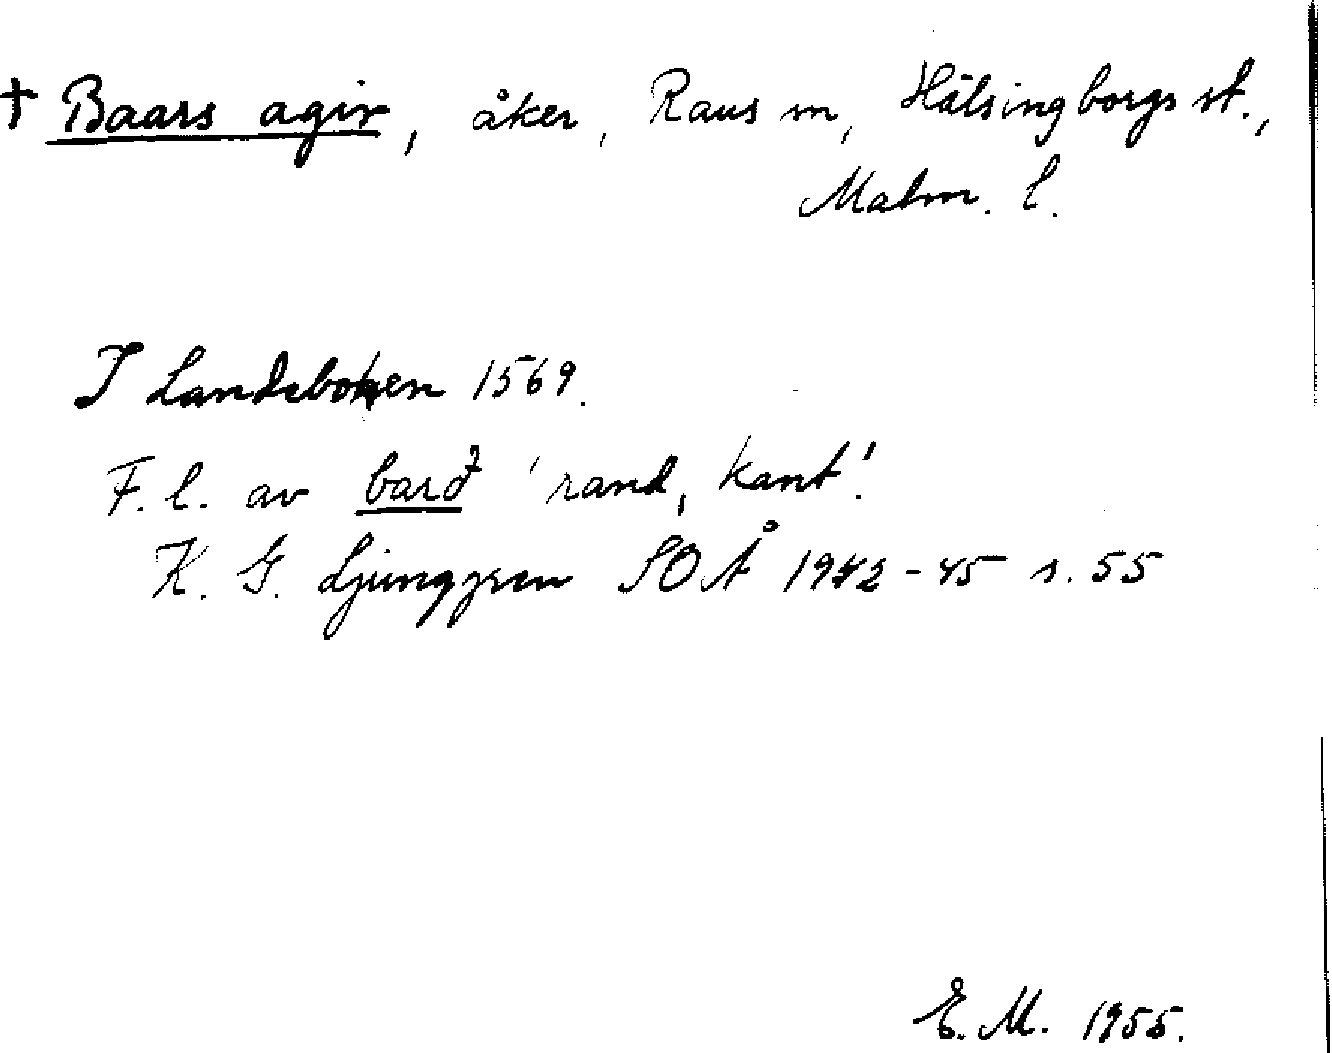 † Baars agir, åker, Raus sn, Hälsingborgs st.,
Malm. l.
I Landeboken 1569.
F. l. av barð 'rand, kant'.
K. G. Ljunggren SOÅ 1942-45 s. 55
E. M. 1955.